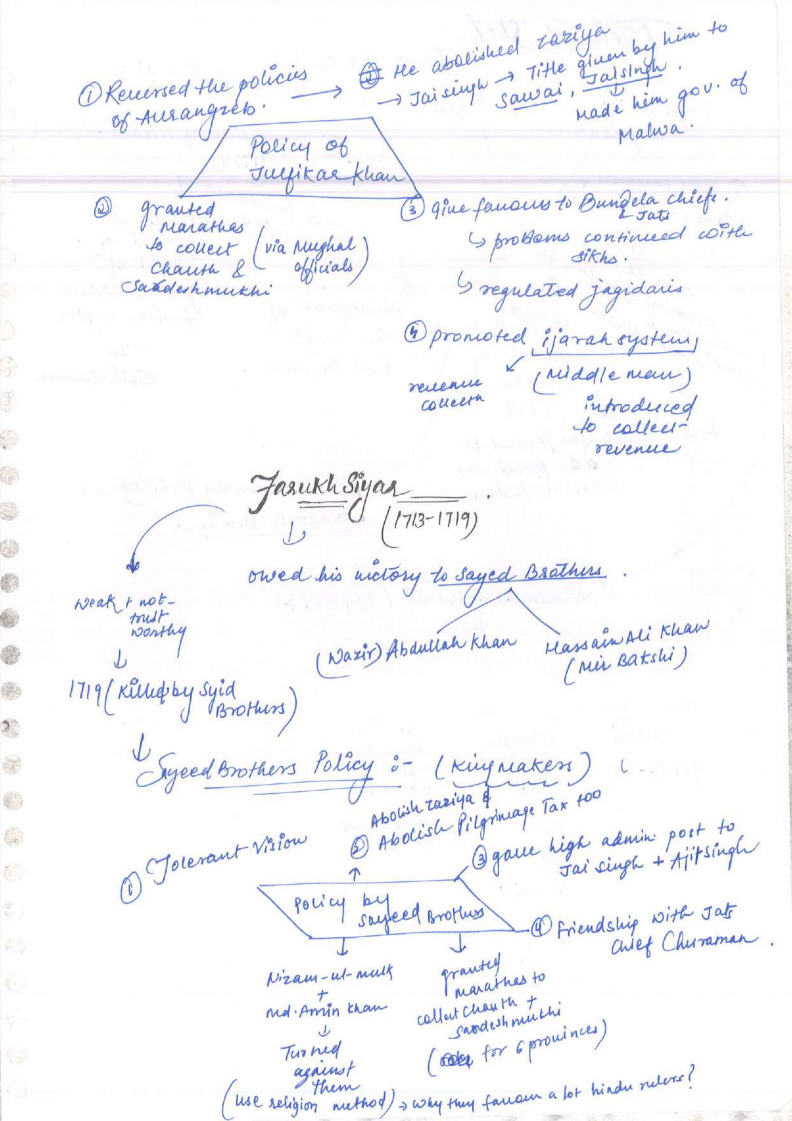 ① Reversed the policies
of Aurangzeb.
→ He abolished zaziya
→ Jaisingh → Title given by him to
Sawai, Jaisingh.
↓
Made him gov. of
Malwa.
Policy of
Zulfikar Khan
② granted
Marathas
to collect
Chauth &
Sardeshmukhi
(via Mughal
officials)
③ give favours to Bundela chiefs.
& Jats
↳ problems continued with
sikhs.
↳ regulated jagidaris
④ promoted ijarah system
revenue
concern
(Middle man)
introduced
to collect
revenue
Farukh Siyar
(1713-1719)
owed his victory to Sayed Brothers.
Weak + not-
trust
worthy
↓
1719 (Killed by Syid
Brothers)
(Wazir) Abdullah Khan
Hassain Ali Khan
(Mir Bakshi)
↓
Sayeed Brothers Policy :- (King makers)
① Tolerant Vision
Abolish zaziya &
② Abolish Pilgrimage Tax too
③ gave high admin. post to
Jai Singh + Ajit singh
Policy by
Sayeed Brothers
④ Friendship with Jats
chief Churaman.
Nizam-ul-mulk
+
Md. Amin Khan
↓
Turned
against
them
(use religion method) → why they favour a lot hindu rulers?
granted
marathas to
collect chauth +
sardeshmukhi
(for 6 provinces)